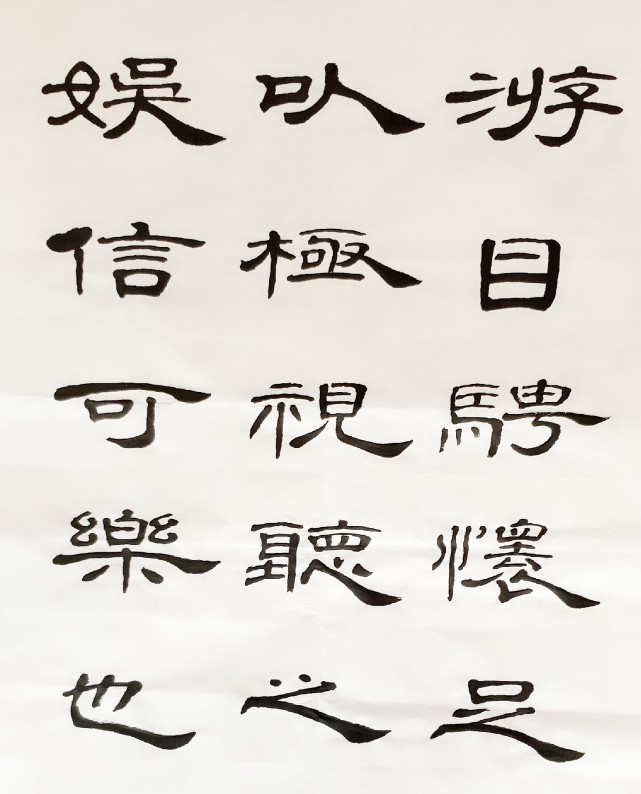 游目騁懷足
㕥極視聽之
娛信可樂也